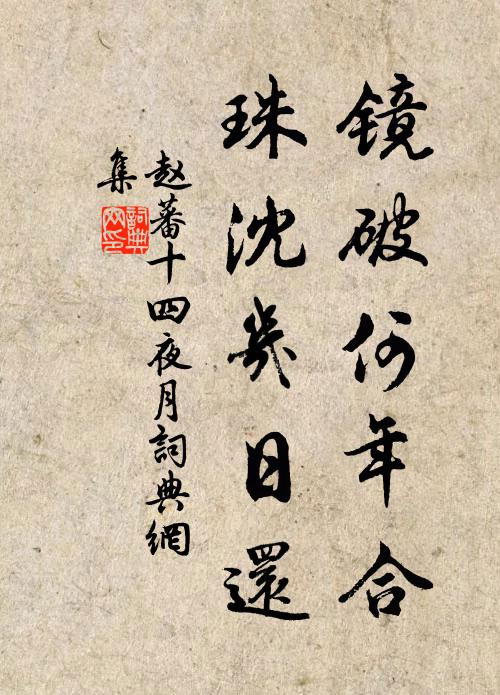 镜破何年合
珠沈几日還
赵蕃十四夜月詞典網
集
詞典
网印